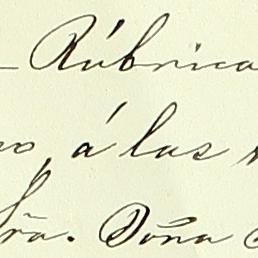 Rúbrica
á las
Sra. Doña